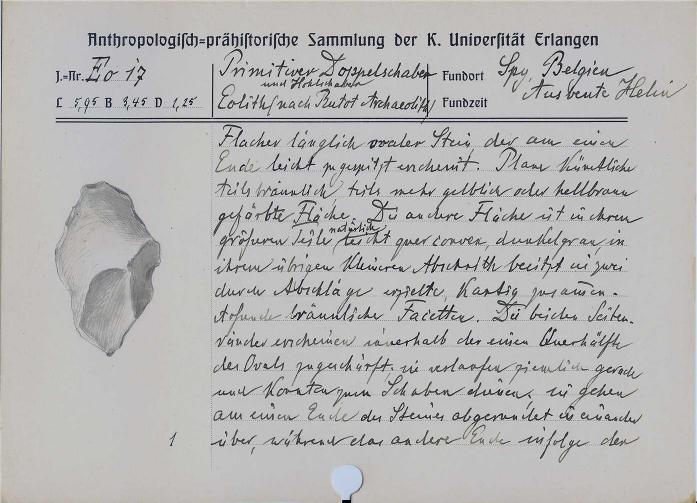 Anthropologisch=prähistorische Sammlung der K. Universität Erlangen
J.=Nr. Eo 17
L 5,95 B 3,45 D 1,25
Primitiver Doppelschaber
und Hohlschaber
Eolith (nach Rutot Archaeolith)
Fundort Spy, Belgien
Ausbeute Helin
Fundzeit
Flacher länglich ovaler Stein, der am einen
Ende leicht zugespitzt erscheint. Plane Künstliche
teils bräunlich, teils mehr gelblich oder hellbraun
gefärbte Fläche. Die andere Fläche ist in ihrem
natürlich
größeren Teile leicht quer convex, dunkelgrau in
ihrem übrigen Kleineren Abschnitt besitzt sie zwei
durch Abschläge erzielte, Kantig zusammen-
stoßende bräunliche Facetten. Die beiden Seiten-
ränder erscheinen innerhalb der einen Querhälfte
des Ovals zugeschärft. sie verlaufen ziemlich gerade
und Konnten zum Schaben dienen. sie gehen
am einen Ende des Steines abgerundet in einander
über, während das andere Ende infolge der
1